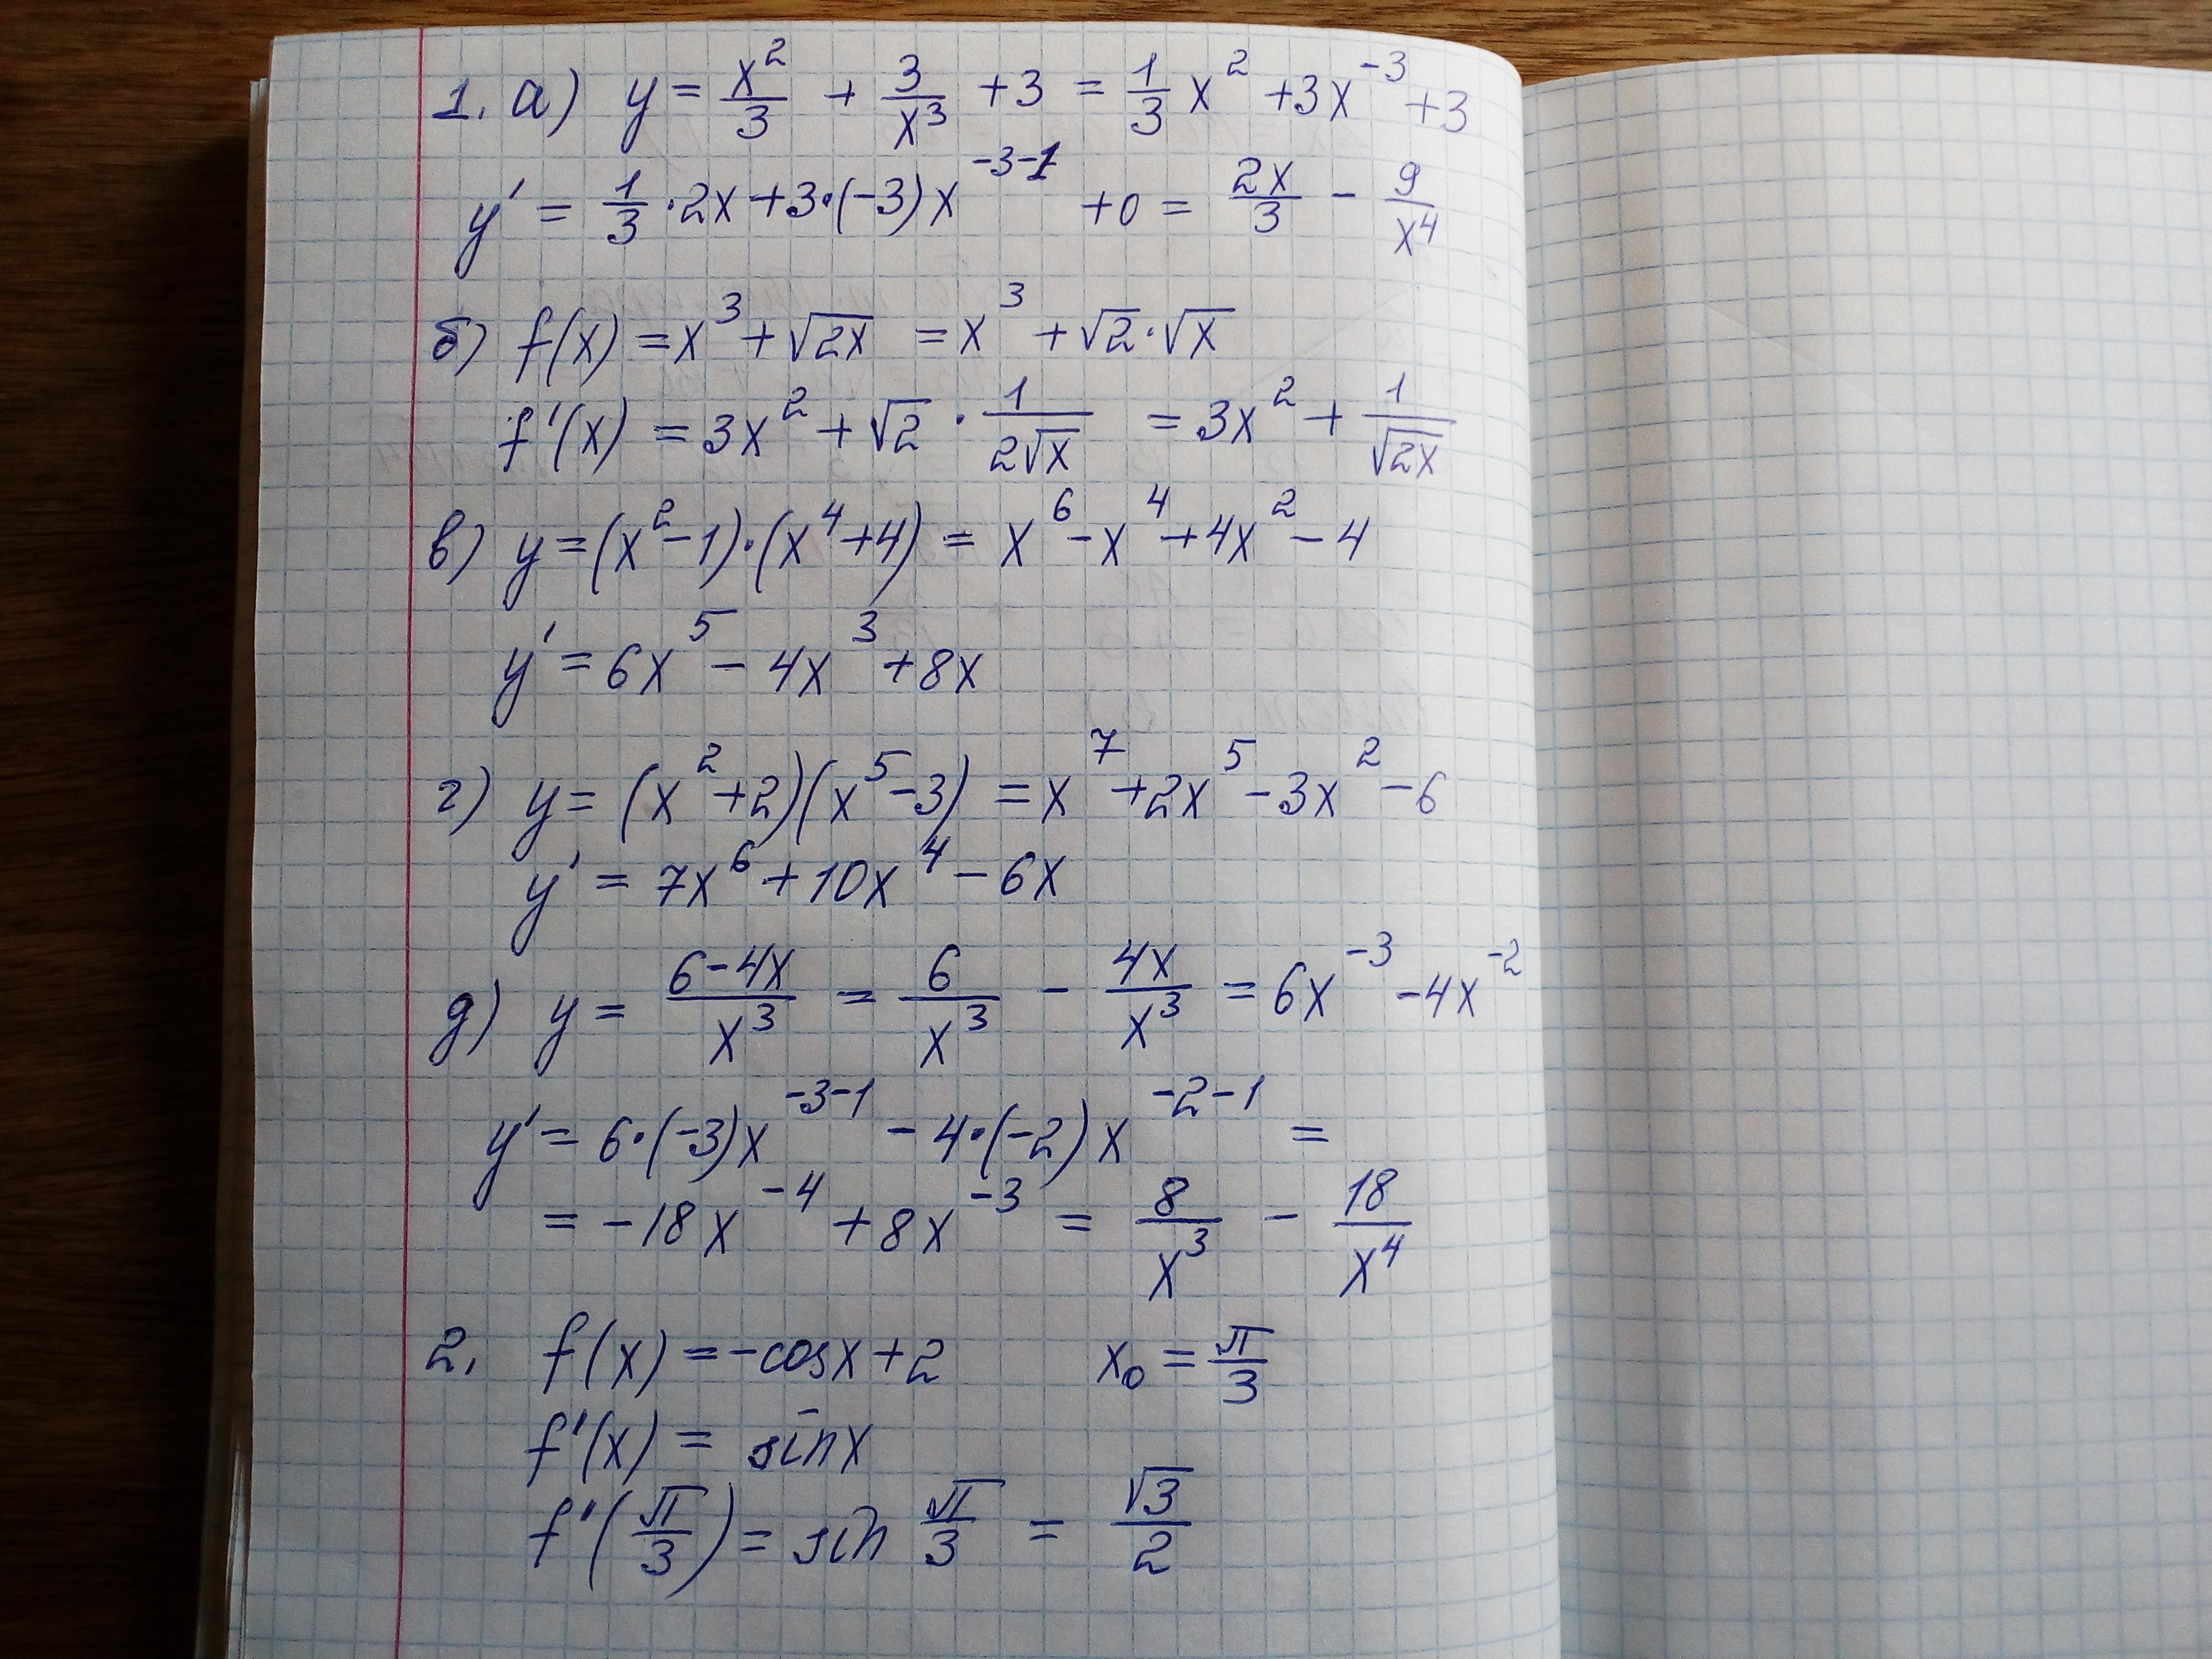 1. а) y = x²/3 + 3/x³ + 3 = 1/3 x² + 3x⁻³ + 3
y' = 1/3 · 2x + 3·(-3)x⁻³⁻¹ + 0 = 2x/3 - 9/x⁴
б) f(x) = x³ + √(2x) = x³ + √2 · √x
f'(x) = 3x² + √2 · 1/(2√x) = 3x² + 1/√(2x)
в) y = (x² - 1)·(x⁴ + 4) = x⁶ - x⁴ + 4x² - 4
y' = 6x⁵ - 4x³ + 8x
г) y = (x² + 2)(x⁵ - 3) = x⁷ + 2x⁵ - 3x² - 6
y' = 7x⁶ + 10x⁴ - 6x
д) y = (6 - 4x)/x³ = 6/x³ - 4x/x³ = 6x⁻³ - 4x⁻²
y' = 6·(-3)x⁻³⁻¹ - 4·(-2)x⁻²⁻¹ =
= -18x⁻⁴ + 8x⁻³ = 8/x³ - 18/x⁴
2. f(x) = -cosx + 2 x₀ = π/3
f'(x) = sinx
f'(π/3) = sin π/3 = √3/2